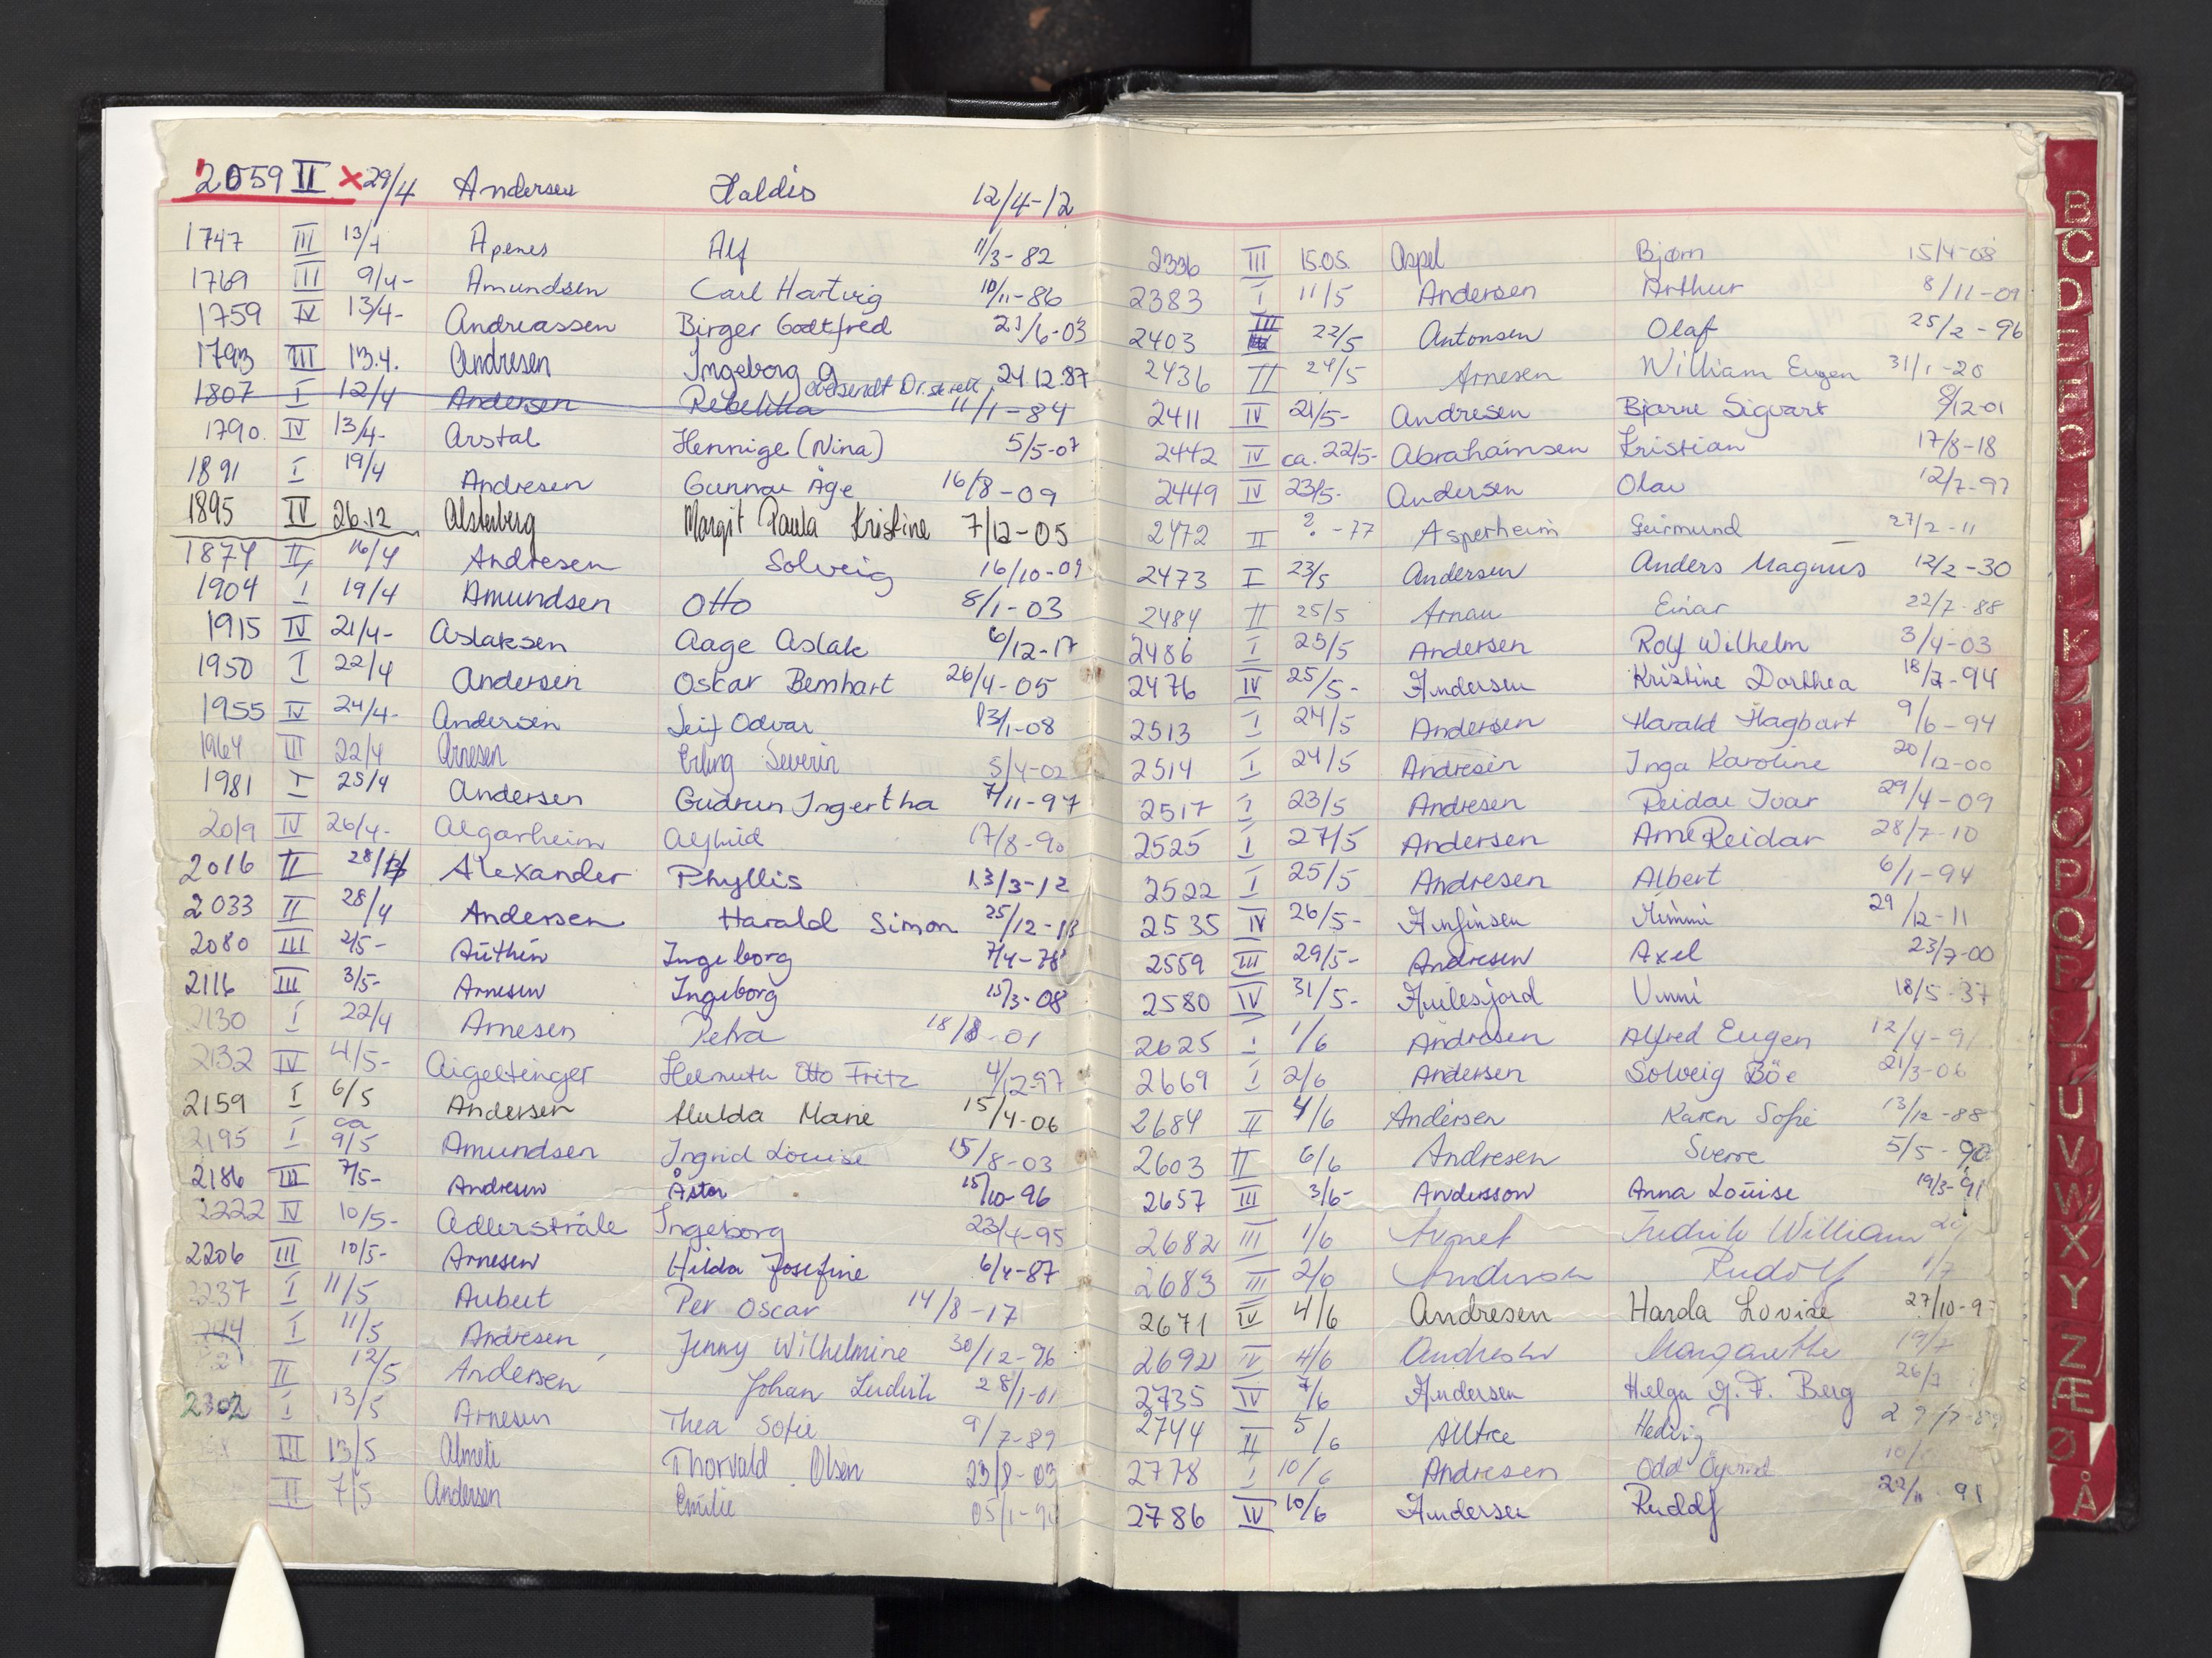 2059 II x 29/4 Andersen Haldis 12/4-12
1747 III 13/4 Apenes Alf 11/3-82
1769 III 9/4- Amundsen Carl Hartvig 10/11-86
1759 IV 13/4- Andreassen Birger Godtfred 23/6-03
1793 III 13.4. Andresen Ingeborg G 24.12.87
1807 I 12/4 Andersen Rebekka oversendt Dr. 11/1-84
1790. IV 13/4- Arstal Hennige (Nina) 5/5-07
1891 I 19/4 Andresen Gunnar Åge 16/8-09
1895 IV 26.12 Alsterberg Margit Paula Kristine 7/12-05
1874 II 16/4 Andresen Solveig 16/10-09
1904 I 19/4 Amundsen Otto 8/1-03
1915 IV 21/4- Aslaksen Aage Aslak 6/12-17
1950 I 22/4 Andersen Oskar Bernhart 26/4-05
1955 IV 24/4- Andersen Leif Odvar 13/1-08
1964 III 22/4 Arnesen Erling Severin 5/4-02
1981 I 25/4 Andersen Gudrun Ingertha 7/11-97
2019 IV 26/4- Algarheim Alfhild 17/8-90
2016 II 28/4 Alexander Phyllis 13/3-12
2033 II 28/4 Andersen Harald Simon 25/12-13
2080 III 2/5- Authén Ingeborg 7/4-78
2116 III 3/5- Arnesen Ingeborg 15/3-08
2130 I 22/4 Arnesen Petra 18/8-01
2132 IV 4/5- Aigeltinger Helmuth Otto Fritz 4/12-97
2159 I 6/5 Andersen Hulda Marie 15/4-06
2195 I ca 9/5 Amundsen Ingrid Louise 15/8-03
2186 III 7/5- Andresen Åstar 15/10-96
2222 IV 10/5- Adlerstråle Ingeborg 23/4-95
2206 III 10/5- Arnesen Hilda Josefine 6/4-87
2237 I 11/5 Aubert Per Oscar 14/8-17
I 11/5 Andresen Jenny Wilhelmine 30/12-96
II 12/5 Andersen Johan Ludvik 28/1-01
2302 I 13/5 Arnesen Thea Sofie 9/7-89
III 13/5 Almeli Thorvald Olsen 23/8-03
II 7/5 Andersen Emilie 05/1-
2336 III 15.05. Aspel Bjørn 15/4-08
2383 I 11/5 Andersen Arthur 8/11-01
2403 III 22/5 Antonsen Olaf 25/2-96
2436 II 24/5 Arnesen William Eugen 31/1-20
2411 IV 21/5- Andresen Bjarne Sigvart 8/12-01
2442 IV ca. 22/5- Abrahamsen Kristian 17/8-18
2449 IV 23/5- Andersen Olav 12/7-97
2472 II ?-77 Asperheim Geirmund 27/2-11
2473 I 23/5 Andersen Anders Magnus 12/2-30
2484 II 25/5 Arnau Einar 22/7-88
2486 I 25/5 Andersen Rolf Wilhelm 3/4-03
2476 IV 25/5- Andersen Kristine Dorthea 18/7-94
2513 I 24/5 Andersen Harald Hagbart 9/6-94
2514 I 24/5 Andresen Inga Karoline 20/12-00
2517 I 23/5 Andresen Reidar Ivar 29/4-09
2525 I 27/5 Andersen Arne Reidar 28/7-10
2522 I 25/5 Andresen Albert 6/1-94
2535 IV 26/5- Anfinsen Mimmi 29/12-11
2559 III 29/5- Andresen Axel 23/7-00
2580 IV 31/5- Unni 18/5-37
2625 I 1/6 Andresen Alfred Eugen 12/4-91
2669 I 2/6 Andersen Solveig Böe 21/3-06
2684 II 4/6 Andersen Karen Sofie 13/12-88
2603 II 6/6 Andresen Sverre 5/5-90
2657 III 3/6- Andersson Anna Louise 19/3-91
2682 III 1/6 Fredrik William
2683 III 2/6 Andersen Rudolf 1/7
2671 IV 4/6 Andresen Harda Lovise 27/10-9
2692 IV 4/6 Andresen Margarethe 19/7
2735 IV 7/6 Andersen Helga M. F. Berg 26/7
2744 II 5/6 Alltree Hedvig 29/7-8
2778 I 10/6 Andresen Odd Øyvind 10/
2786 IV 10/6 Andersen Rudolf 22/11 91
B
C
D
E
F
G
K
N
O
P
Q
R
U
V
W
X
Y
Z
Æ
Ø
Å